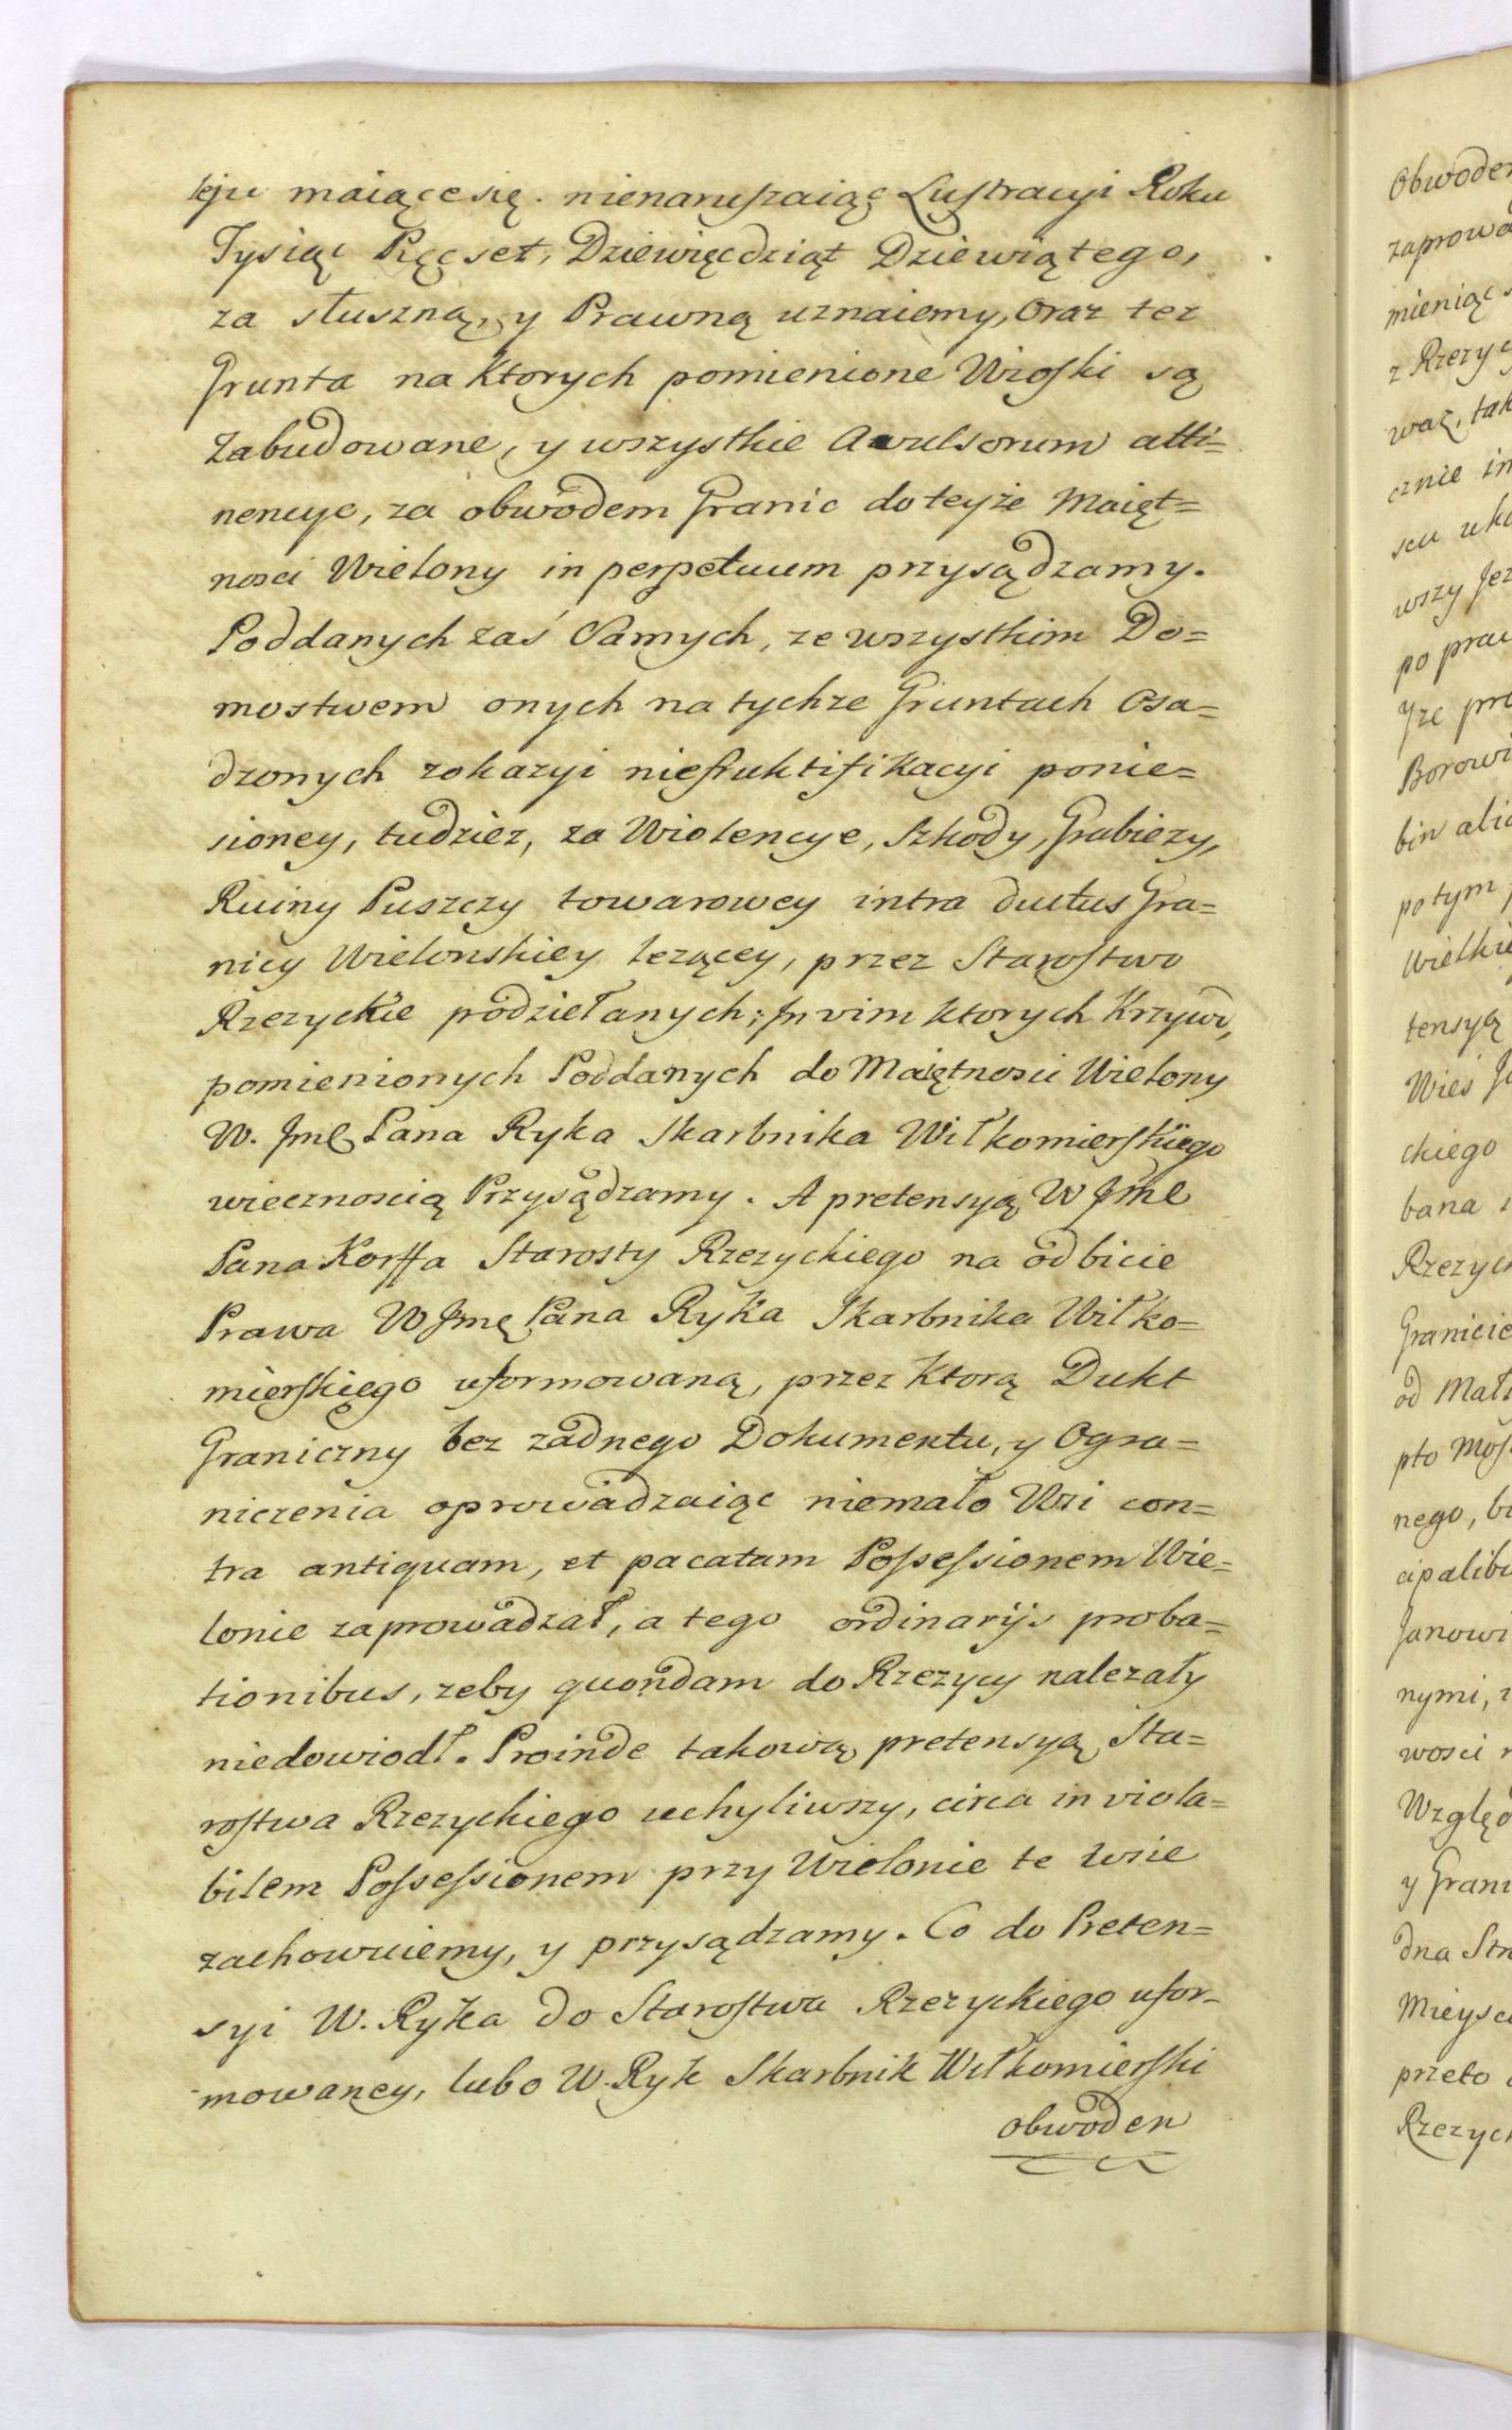 teyze maiące się. nienaruszaiąc Lustracyi Roku
Tysiąc Pięcset, Dziewięcdziąt Dziewiątego,
za słuszną, y Prawną uznaiemy, Oraz tez
Grunta na Ktorych pomienione Wioski są
Zabudowane, y wszystkie Avulsorum atti=
nencye, za obwodem Granic do teyże Maięt=
nosci Wielony in perpetuum przysądzamy.
Poddanych zaś Samych, ze wszystkim Do=
mostwem onych na tychze Gruntach Osa=
dzonych zokazyi niefruktifikacyi ponie=
sioney, tudziez, za Wiolencye, Szkody, Grabiezy,
Ruiny Puszczy towarowey intra ductus Gra=
nicy Wielonskiey lezącey, przez Starostwo
Rzezyckie podziełanych; In vim Ktorych Krzywd,
pomienionych Poddanych do Maiętnosci Wielony
W. Jmę Pana Ryka Skarbnika Wiłkomierskiego
wiecznoscią Przysądzamy. A pretensyą W Jmę
Pana Korffa Starosty Rzezyckiego na odbicie
Prawa W Jmę Pana Ryka Skarbnika Wiłko=
mierskiego uformowaną, przez Ktorą Dukt
Graniczny bez zadnego Dokumentu, y Ogra=
niczenia oprowadzaiąc niemało Wsi con=
tra antiquam, et pacatam Possessionem Wie=
lonie zaprowadzał, a tego ordinarijs proba=
tionibus, zeby quondam do Rzezycy nalezały
niedowiodł. Proinde takową pretensyą Sta=
rostwa Rzezyckiego uchyliwszy, circa inviola=
bilem Possessionem przy Wielonie te Wsie
zachowuiemy, y przysądzamy. Co do Preten=
syi W. Ryka do Starostwa Rzezyckiego ufor=
mowaney, lubo W. Ryk Skarbnik Wiłkomierski
obwoden
Obwoden
z Rzezyc
po tym
Wielkie
tensyą
Wies
ckiego
bana
Rzezyck
Granicie
od
nego,
cipalibu
nymi,
wosci
y Grani
dna
Mieysc
przeto
Rzezyck